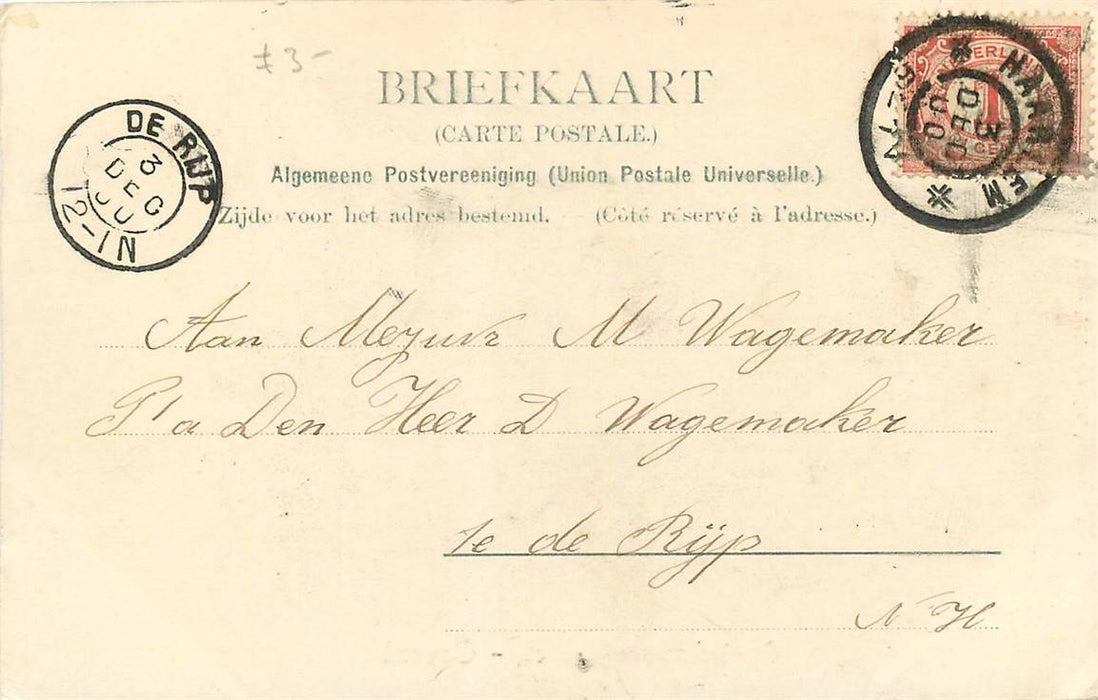 # 3-
BRIEFKAART
(CARTE POSTALE.)
Algemeene Postvereeniging (Union Postale Universelle.)
Zijde voor het adres bestemd. — (Côté réservé à l'adresse.)
DE RIJP
3
DEC
00
12-1N
HAARLEM
3
DEC
00
1
CENT
Aan Mejuvr M Wagemaker
P/a Den Heer D Wagemaker
te de Rijp
N-H